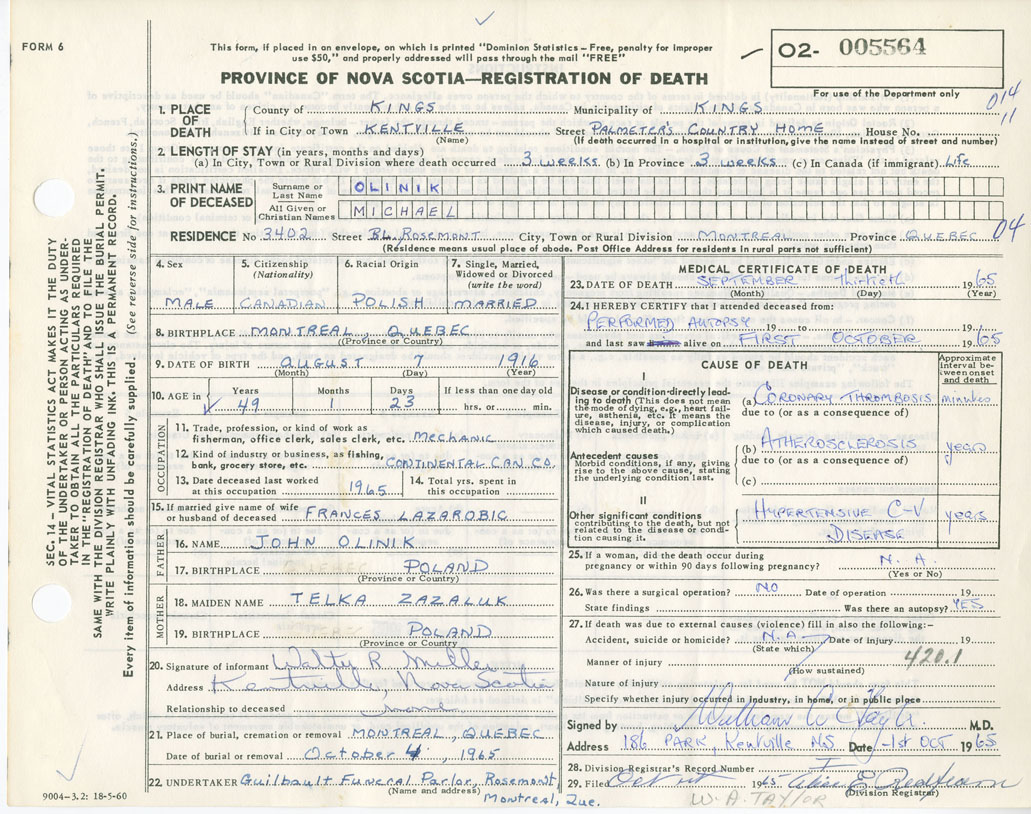 FORM 6
This form, if placed in an envelope, on which is printed "Dominion Statistics – Free, penalty for improper
use $50," and properly addressed will pass through the mail "FREE"
PROVINCE OF NOVA SCOTIA—REGISTRATION OF DEATH
O2- 005564
For use of the Department only
014
11
1. PLACE OF DEATH
County of KINGS Municipality of KINGS
If in City or Town KENTVILLE Street PALMETER'S COUNTRY HOME House No.
(Name) (If death occurred in a hospital or institution, give the name instead of street and number)
2. LENGTH OF STAY (in years, months and days)
(a) In City, Town or Rural Division where death occurred 3 weeks (b) In Province 3 weeks (c) In Canada (if immigrant) Life
3. PRINT NAME OF DECEASED
Surname or Last Name OLINIK
All Given or Christian Names MICHAEL
RESIDENCE No 3402 Street BL. ROSEMONT City, Town or Rural Division MONTREAL Province QUEBEC 04
(Residence means usual place of abode. Post Office Address for residents in rural parts not sufficient)
4. Sex MALE
5. Citizenship (Nationality) CANADIAN
6. Racial Origin POLISH
7. Single, Married, Widowed or Divorced (write the word) MARRIED
8. BIRTHPLACE MONTREAL, QUEBEC
(Province or Country)
9. DATE OF BIRTH AUGUST 7 1916
(Month) (Day) (Year)
10. AGE in Years 49 Months 1 Days 23 If less than one day old hrs. or min.
OCCUPATION
11. Trade, profession, or kind of work as
fisherman, office clerk, sales clerk, etc. MECHANIC
12. Kind of industry or business, as fishing,
bank, grocery store, etc. CONTINENTAL CAN CO.
13. Date deceased last worked at this occupation 1965
14. Total yrs. spent in this occupation
15. If married give name of wife
or husband of deceased FRANCES LAZAROBIC
FATHER
16. NAME JOHN OLINIK
17. BIRTHPLACE POLAND
(Province or Country)
MOTHER
18. MAIDEN NAME TELKA ZAZALUK
19. BIRTHPLACE POLAND
(Province or Country)
20. Signature of informant Walter R. Miller
Address Kentville, Nova Scotia
Relationship to deceased
21. Place of burial, cremation or removal MONTREAL, QUEBEC
Date of burial or removal October 4, 1965
22. UNDERTAKER Guilbault Funeral Parlor, Rosemont,
(Name and address)
Montreal, Que.
9004-3.2: 18-5-60
MEDICAL CERTIFICATE OF DEATH
23. DATE OF DEATH SEPTEMBER Thirtieth 1965
(Month) (Day) (Year)
24. I HEREBY CERTIFY that I attended deceased from:
PERFORMED AUTOPSY 19 to 19
and last saw alive on FIRST OCTOBER 1965
CAUSE OF DEATH
Approximate interval between onset and death
I
Disease or condition directly leading to death (This does not mean
the mode of dying, e.g., heart failure, asthenia, etc. It means the
disease, injury, or complication which caused death.)
(a) CORONARY THROMBOSIS minutes
due to (or as a consequence of)
Antecedent causes
Morbid conditions, if any, giving rise to the above cause, stating
the underlying condition last.
(b) ATHEROSCLEROSIS years
due to (or as a consequence of)
(c)
II
Other significant conditions
contributing to the death, but not related to the disease or condition causing it.
HYPERTENSIVE C-V years
DISEASE
25. If a woman, did the death occur during
pregnancy or within 90 days following pregnancy? N. A.
(Yes or No)
26. Was there a surgical operation? NO Date of operation 19
State findings Was there an autopsy? YES
27. If death was due to external causes (violence) fill in also the following:–
Accident, suicide or homicide? N.A Date of injury 19
(State which)
420.1
Manner of injury
(How sustained)
Nature of injury
Specify whether injury occurred in industry, in home, or in public place
Signed by William A Taylor M.D.
Address 186 PARK, Kentville N.S. Date 1st OCT 1965
28. Division Registrar's Record Number
29. Filed Oct 1965
(Division Registrar)
W. A. TAYLOR
SEC. 14 – VITAL STATISTICS ACT MAKES IT THE DUTY
OF THE UNDERTAKER OR PERSON ACTING AS UNDER-
TAKER TO OBTAIN ALL THE PARTICULARS REQUIRED
IN THE "REGISTRATION OF DEATH" AND TO FILE THE
SAME WITH THE DIVISION REGISTRAR WHO SHALL ISSUE THE BURIAL PERMIT.
WRITE PLAINLY WITH UNFADING INK. THIS IS A PERMANENT RECORD.
Every item of information should be carefully supplied. (See reverse side for instructions.)